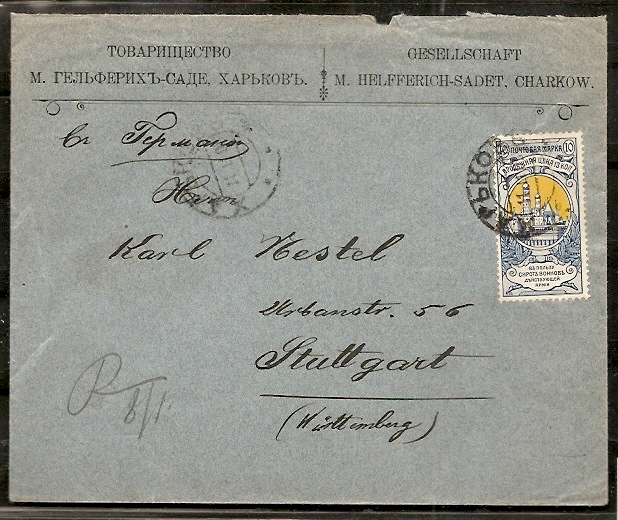 ТОВАРИЩЕСТВО
М. ГЕЛЬФЕРИХЪ-САДЕ, ХАРЬКОВЪ.
GESELLSCHAFT
M. HELFFERICH-SADET, CHARKOW.
Германію
Herrn
Karl Nestel
Urbanstr. 56
Stuttgart
(Württemberg)
10 ПОЧТОВАЯ МАРКА 10
ПРОДАЖНАЯ ЦѢНА 13 КОП.
ВЪ ПОЛЬЗУ
СИРОТЪ ВОИНОВЪ
ДѢЙСТВУЮЩЕЙ
АРМІИ